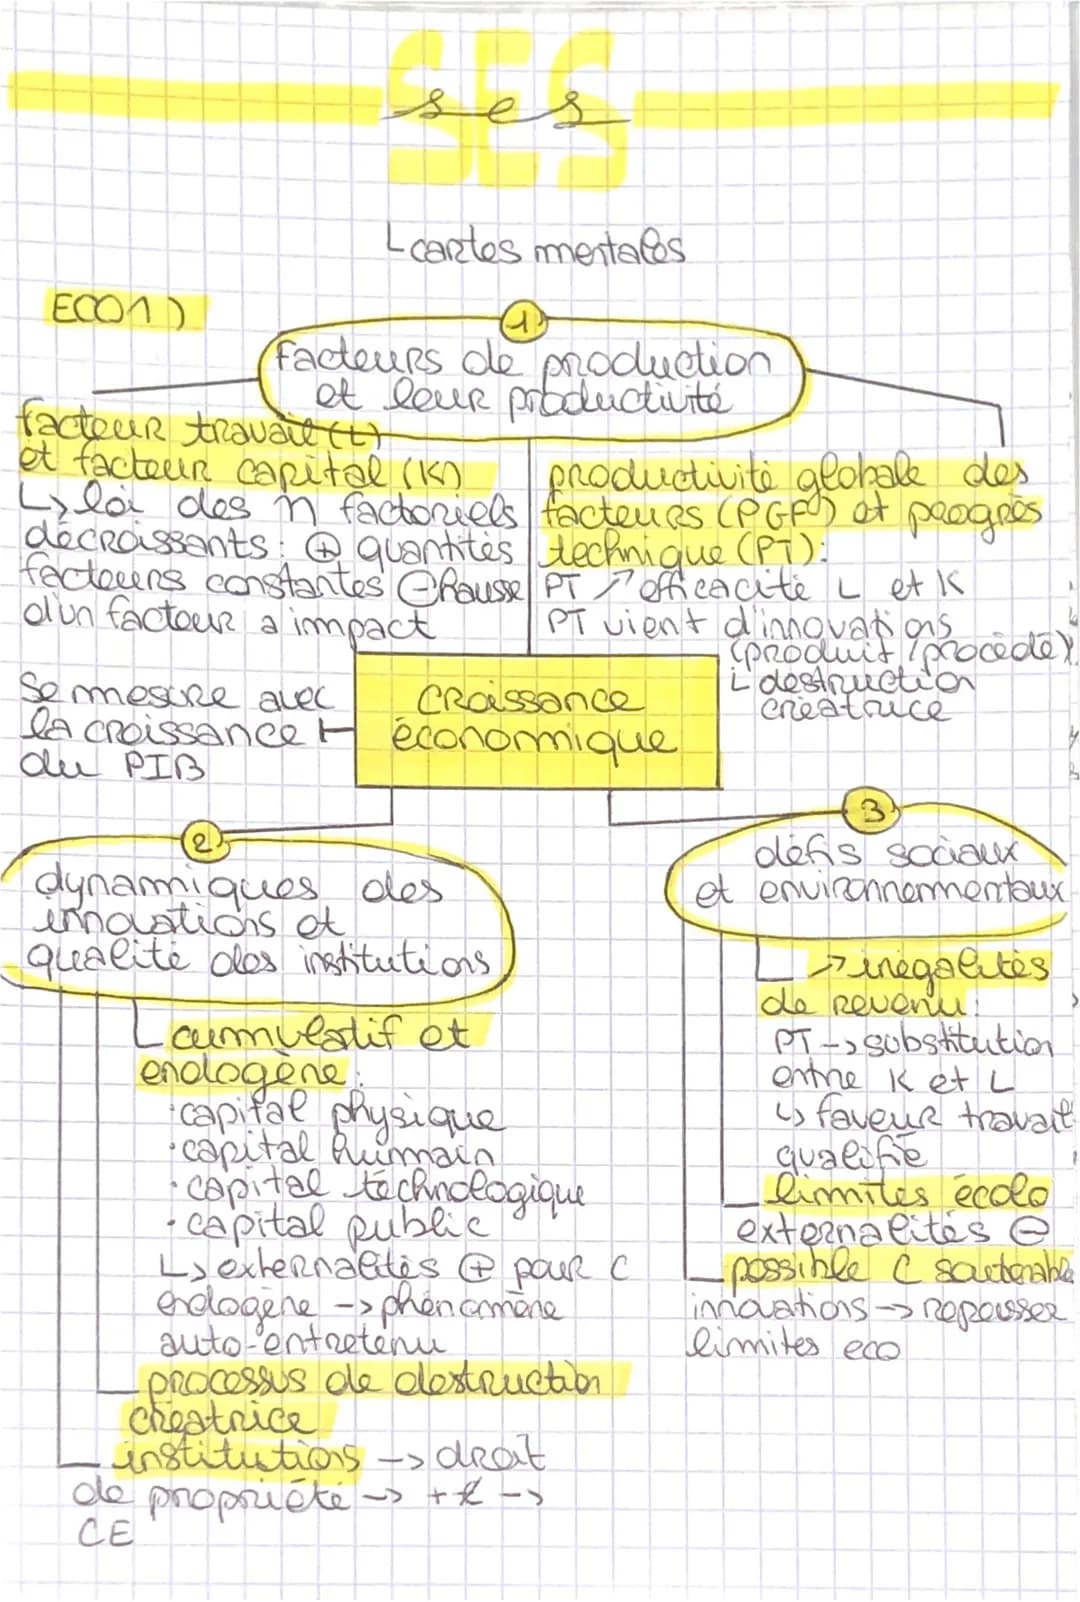 SES
ses
cartes mentales
ECO1)
1
facteurs de production
et leur productivité
facteur travail (L)
et facteur capital (K)
↳ loi des n factoriels
décroissants : ⊕ quantités
facteurs constantes ⊖ hausse
d'un facteur a impact
productivité globale des
facteurs (PGF) et progrès
technique (PT):
PT ↗ efficacité L et K
PT vient d'innovations
(produit / procédé)
destruction
créatrice
Se mesure avec
la croissance
du PIB
croissance
économique
2
dynamiques des
innovations et
qualité des institutions
cumulatif et
endogène :
· capital physique
· capital humain
· capital technologique
· capital public
↳ externalités ⊕ pour C
endogène -> phénomène
auto-entretenu
processus de destruction
créatrice
institutions -> droit
de propriété -> + ->
CE
3
défis sociaux
et environnementaux
↗ inégalités
de revenu :
PT -> substitution
entre K et L
↳ faveur travail
qualifié
limites écolo
externalités ⊖
possible C soutenable
innovations -> repousser
limites eco